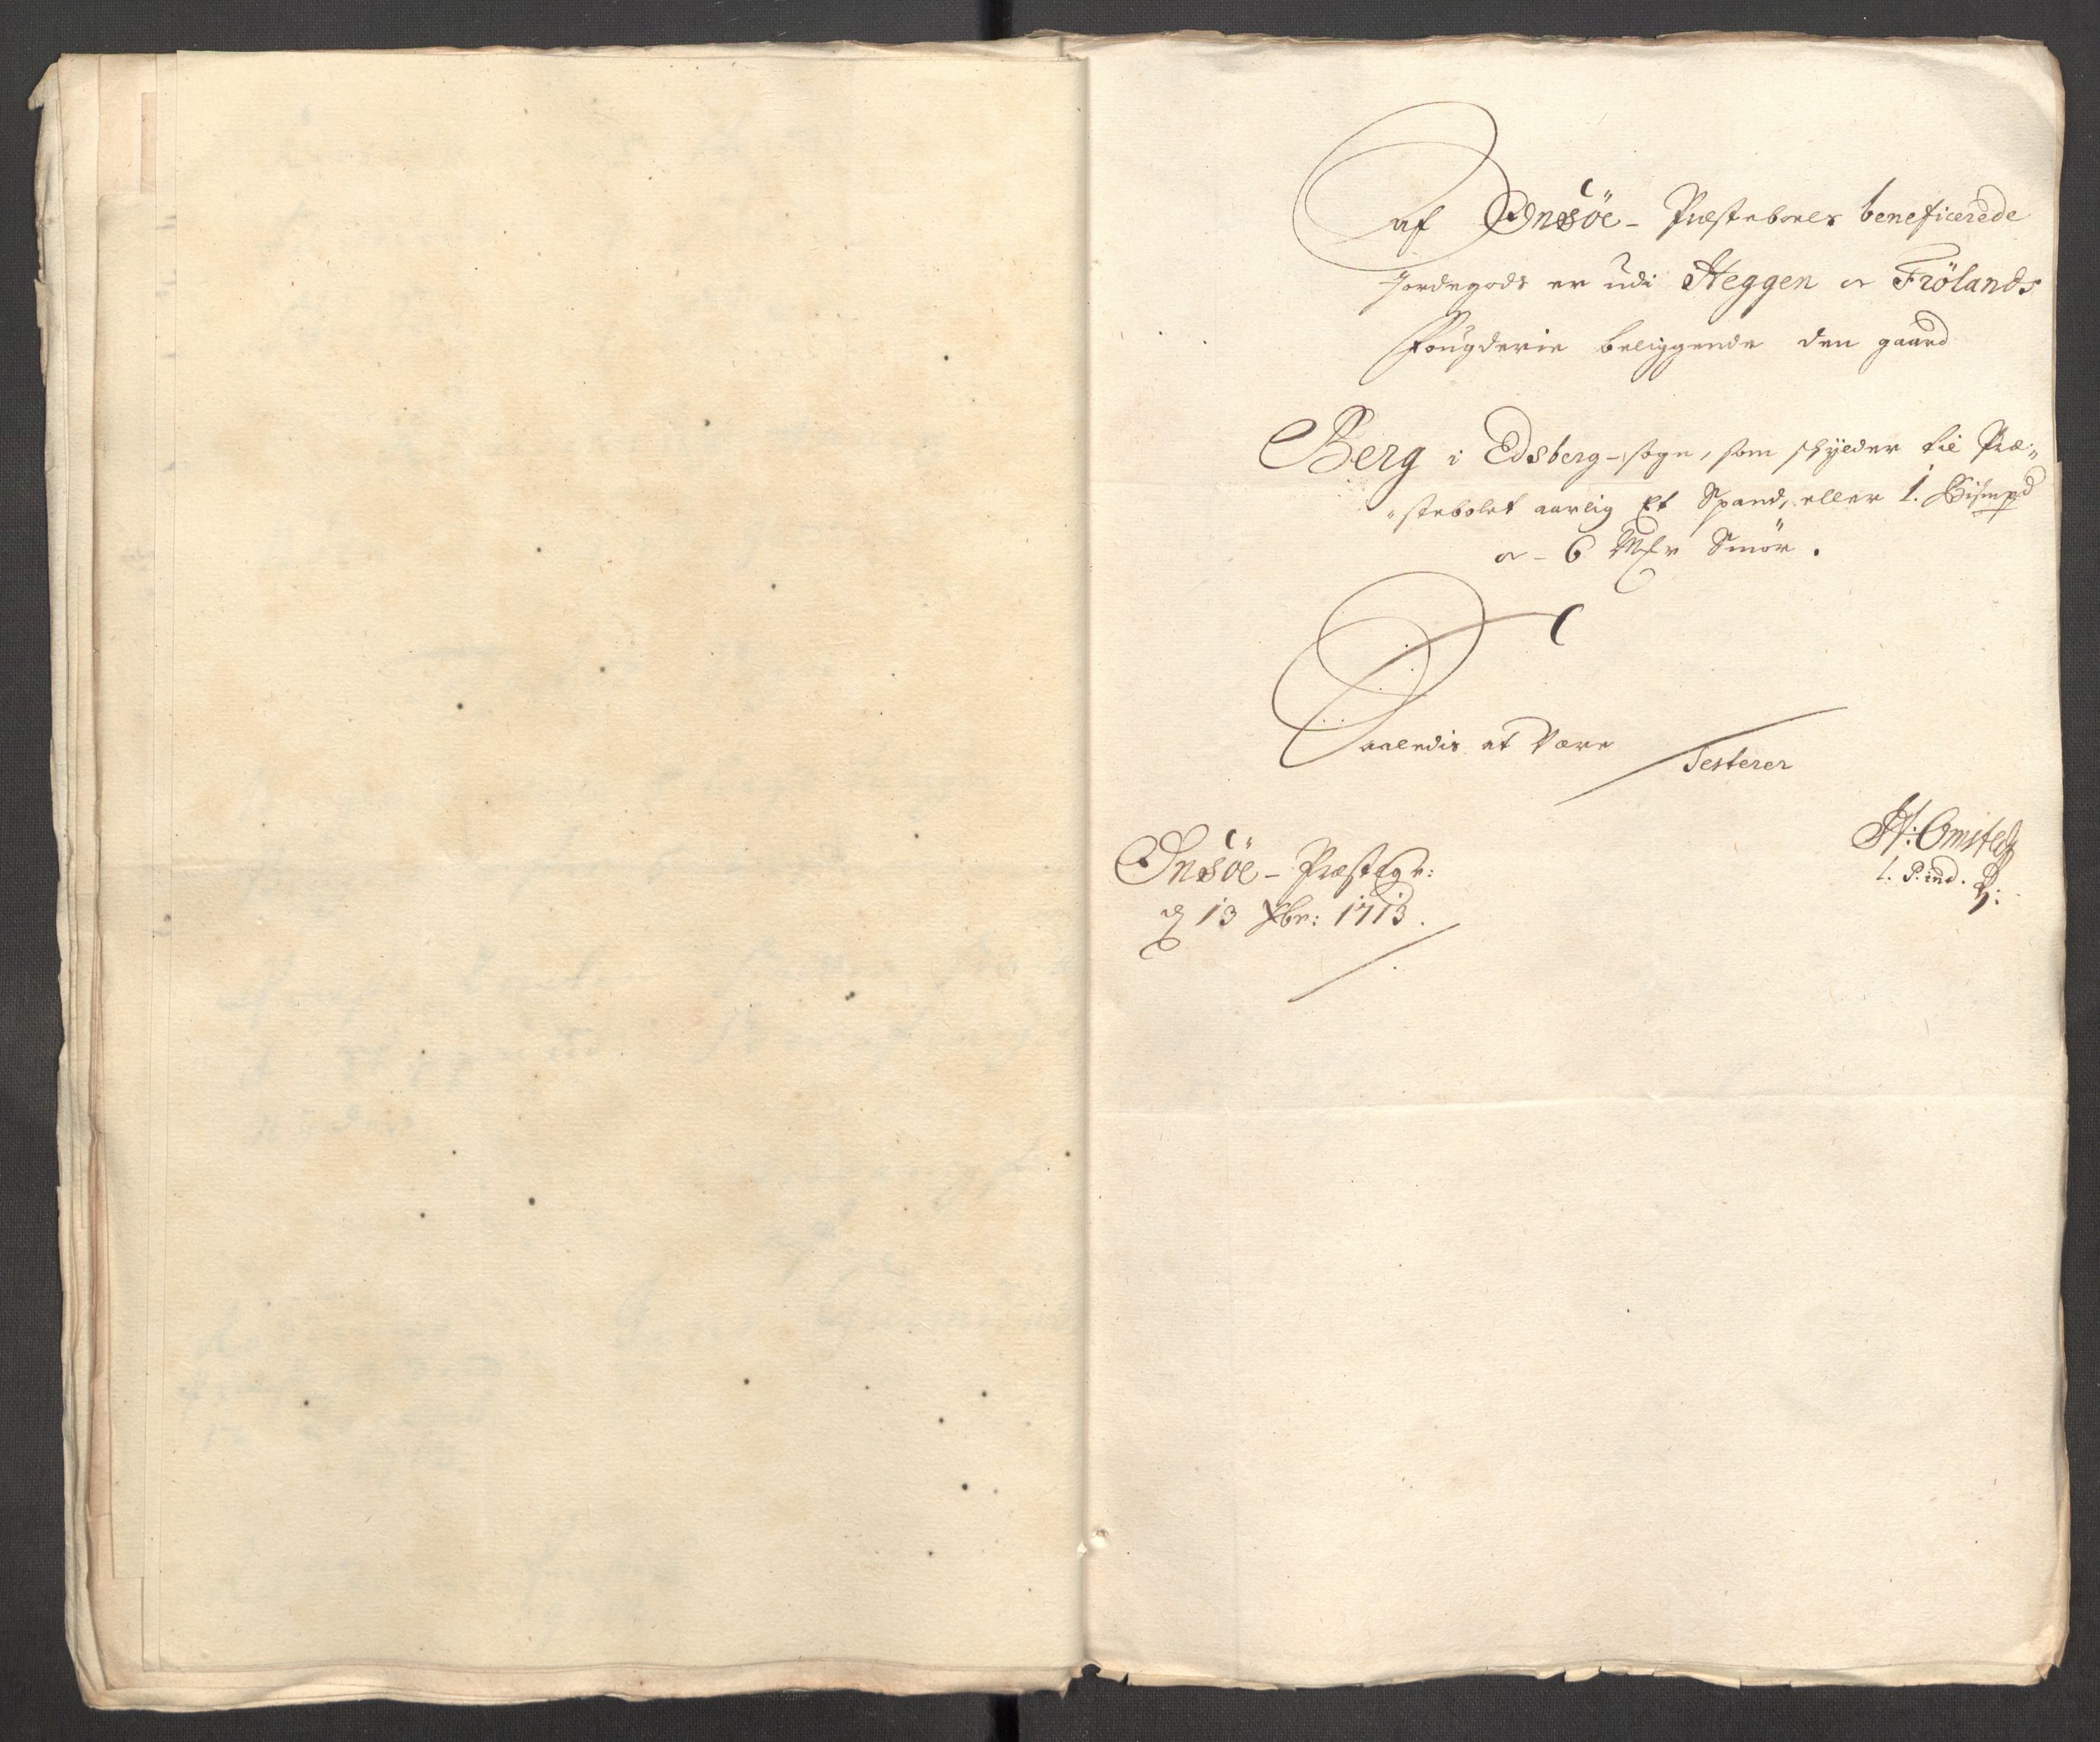 af Onsöe - Præsteboels beneficerede
Jordegods er udi Heggen oc Frölands
Fougderie beliggende den gaard
Berg i Edsberg-sogn, som skylder til Præ„
„stebolet aarlig Et Spand, eller 1. Bismpd
oc - 6 Mkr Smör.
Saaledis at være
Testerer
Onsöe - Præstegr:
d 13 Xbr: 1713.
H: Omsted